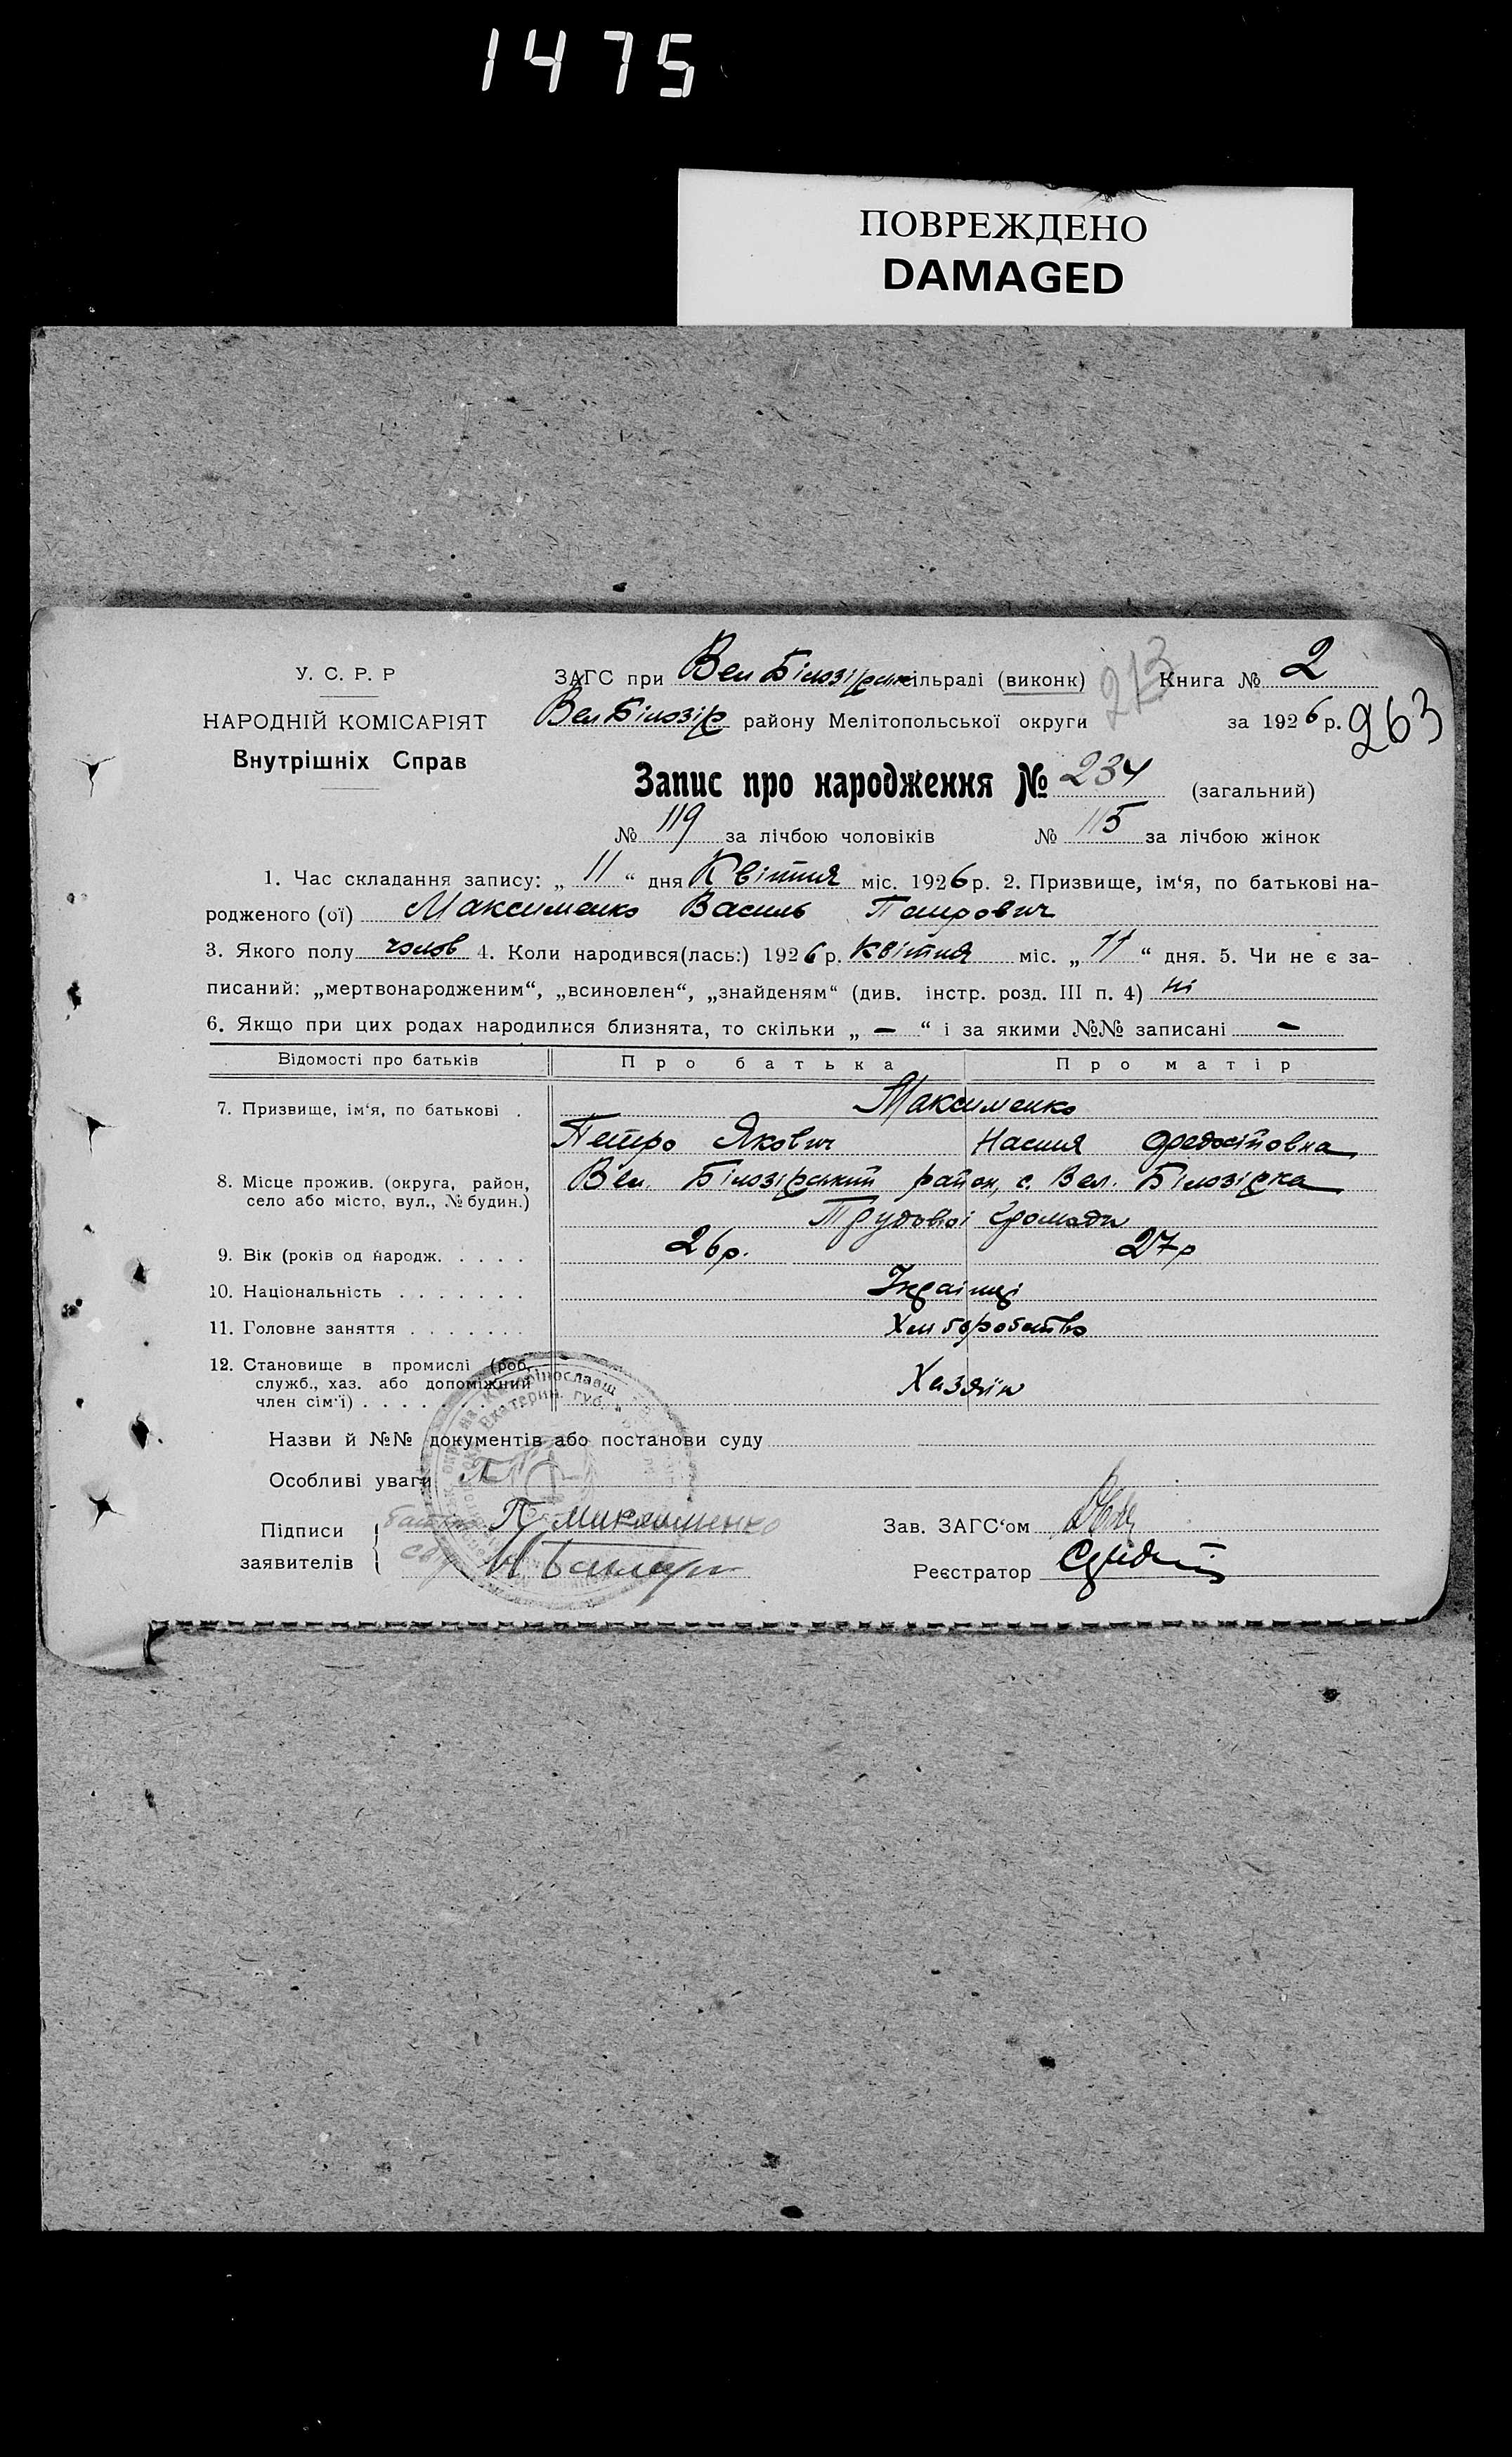 1475
ПОВРЕЖДЕНО
DAMAGED
У. С. Р. Р
НАРОДНІЙ КОМІСАРІЯТ
Внутрішніх Справ
ЗАГС при Вел Білозірськ сільраді (виконк)
213
Книга № 2
Вел Білозір району Мелітопольської округи
за 1926 р.
263
Запис про народження № 234 (загальний)
№ 119 за лічбою чоловіків № 115 за лічбою жінок
1. Час складання запису: „ 11 “ дня Квітня міс. 1926 р. 2. Призвище, ім‘я, по батькові на-
родженого (ої) Максименко Василь Петрович
3. Якого полу чолов 4. Коли народився(лась:) 1926 р. Квітня міс. „ 11 “ дня. 5. Чи не є за-
писаний: „мертвонародженим“, „всиновлен“, „знайденям“ (див. інстр. розд. III п. 4) ні
6. Якщо при цих родах народилися близнята, то скільки „ — “ і за якими №№ записані —
Відомості про батьків Про батька Про матір
7. Призвище, ім‘я, по батькові . Максименко
Петро Якович Настя Федостовна
8. Місце прожив. (округа, район,
село або місто, вул., № будин.)
Вел. Білозірський район, с. Вел. Білозірка
Трудової громади
9. Вік (років од народж. . . . . 26р. 27р
10. Національність . . . . . . . Українці
11. Головне заняття . . . . . . . Хліборобство
12. Становище в промислі (роб.
служб., хаз. або допоміжний
член сім‘ї) . . . . . . . Хазяїн
Назви й №№ документів або постанови суду
Особливі уваги
Підписи
заявителів
П. Микашенко
Зав. ЗАГС‘ом
Реєстратор